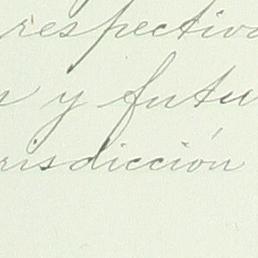 respectiva
s y futu
risdicción